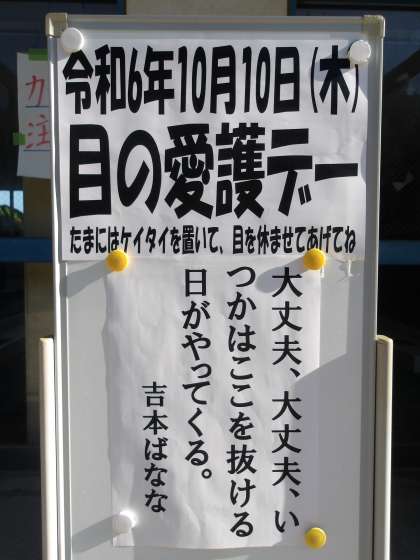 令和6年10月10日(木)
目の愛護デー
たまにはケイタイを置いて、目を休ませてあげてね
大丈夫、大丈夫、い
つかはここを抜ける
日がやってくる。
吉本ばなな
カ
注